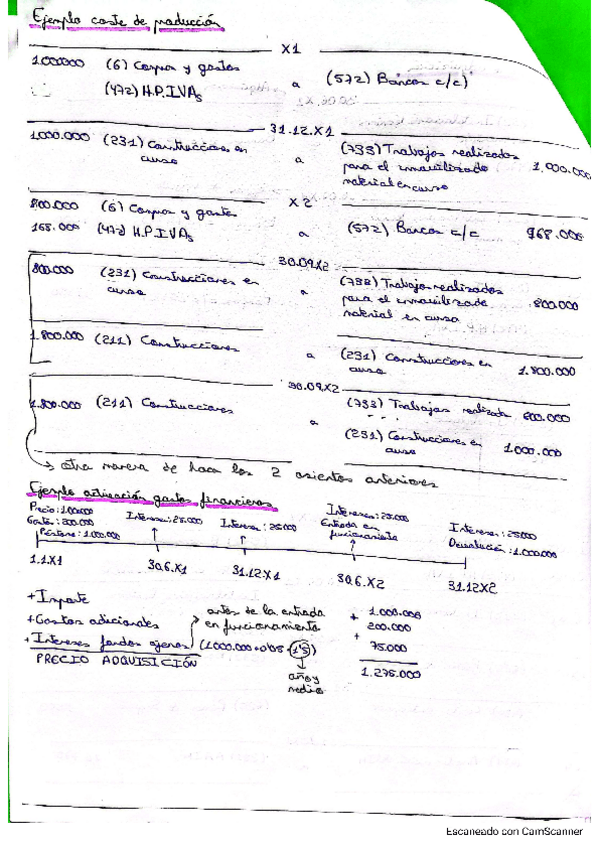 Ejemplo coste de producción
X1
1.000.000 (6) Compra y gastos
(472) H.P. IVAs a (572) Bancos c/c
31.12.X1
1.000.000 (231) Construcciones en curso a (733) Trabajos realizados para el inmovilizado material en curso 1.000.000
X2
800.000 (6) Compra y gastos
168.000 (472) H.P. IVAs a (572) Bancos c/c 968.000
30.09.X2
800.000 (231) Construcciones en curso a (733) Trabajos realizados para el inmovilizado material en curso 800.000
1.800.000 (211) Construcciones
a (231) Construcciones en curso 1.800.000
30.09.X2
1.800.000 (211) Construcciones a (733) Trabajos realizado 800.000
(231) Construcciones en curso 1.000.000
→ otra manera de hacer los 2 asientos anteriores
Ejemplo activación gastos financieros
Precio: 1.000.000
Gastos: 200.000
Préstamo: 1.000.000
Intereses: 25.000
Intereses: 25.000
Intereses: 25.000
Entrada en funcionamiento
Intereses: 25.000
Devolución: 1.000.000
1.1.X1 30.6.X1 31.12.X1 30.6.X2 31.12.X2
+ Importe + 1.000.000
+ Gastos adicionales 200.000
antes de la entrada en funcionamiento
+ Intereses fondos ajenos (1.000.000 · 0'05 · 1'5) + 75.000
PRECIO ADQUISICIÓN 1.275.000
año y medio
Escaneado con CamScanner